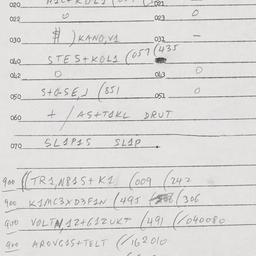 020 021 —
022 0 023 0
030 # ) KANO,V1 031 —
040 STES+KOL1 (057 (435
042 0 043 0
050 S+GSE,J (851 051 —
060 + / AS+TAKL DRUT
070 SL1P1S SL1P
900 ((TR1,N81S+K1 (009 (242
900 K1MC3XD3F1N (495 (306
900 VOLTN12+G12UKT (491 (/040080
900 AROVG1S+TELT (/162010